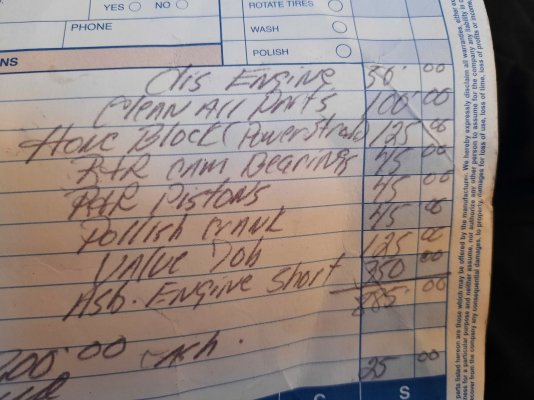 YES NO
PHONE
ROTATE TIRES
WASH
POLISH
NS
Dis Engine 50.00
Clean All Parts 100.00
Hone Block (Powerstroke) 125.00
R+R Cam Bearings 45.00
R+R Pistons 45.00
Pollish Crank 45.00
Valve Job 125.00
Asb. Engine Short 350.00
885.00
200.00 cash.
25 00
S
parts listed hereon are those which may be offered by the manufacturer. We hereby expressly disclaim all warranties, either
ness for a particular purpose and neither assume, nor authorize any other person to assume for the company any liability
recover from the company any consequential damages, to property, damages for loss of use, loss of time, loss of profits or income